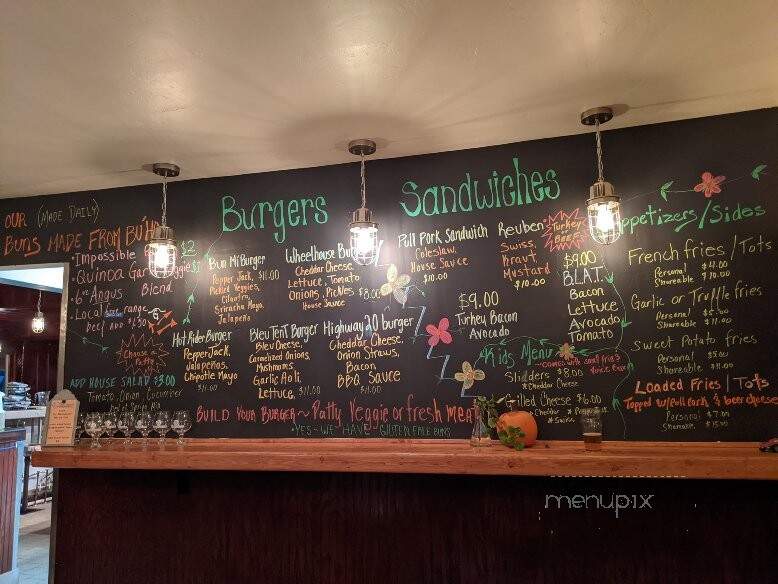 OUR (MADE DAILY)
BUNS MADE FROM
Impossible
Quinoa
6oz Angus Blend
Local range
ADD $6.50
$2
Choose a
ADD HOUSE SALAD $3.00
Tomato, Onion, Cucumber
Burgers
Bun Mi Burger
Pepper Jack, $11.00
Pickled Veggies,
Cilantro,
Sriracha Mayo,
Jalapeño
Wheelhouse
Cheddar Cheese,
Lettuce, Tomato
Onions, Pickles
House Sauce
$8.00
Hot Rider Burger
Pepper Jack,
Jalapeños,
Chipotle Mayo
$11.00
Bleu Tent Burger
Bleu Cheese,
Carmelized Onions,
Mushrooms,
Garlic Aoli,
Lettuce, $11.00
Highway 20 burger
Cheddar Cheese,
Onion Straws,
Bacon
BBQ Sauce
$11.00
BUILD YOUR BURGER ~ Patty Veggie or fresh meat
YES - WE HAVE GLUTEN FREE BUNS
Sandwiches
Pull Pork Sandwich
Coleslaw,
House Sauce
$10.00
Reuben
Swiss,
Kraut,
Mustard
$10.00
Turkey
Beef
$9.00
Turkey Bacon
Avocado
$9.00
B.L.A.T.
Bacon
Lettuce
Avocado
Tomato
Kids Menu
comes with small fries &
Sliders $8.00
*Cheddar Cheese
Grilled Cheese $6.00
*Cheddar
*Swiss
Appetizers/Sides
French fries / Tots
Personal
Shareable $10.00
Garlic or Truffle fries
Personal $5.00
Shareable $11.00
Sweet Potato fries
Personal $5.00
Shareable $11.00
Loaded Fries / Tots
Topped w/ Pull Pork & beer cheese
Personal $7.00
Shareable $15.00
menupix